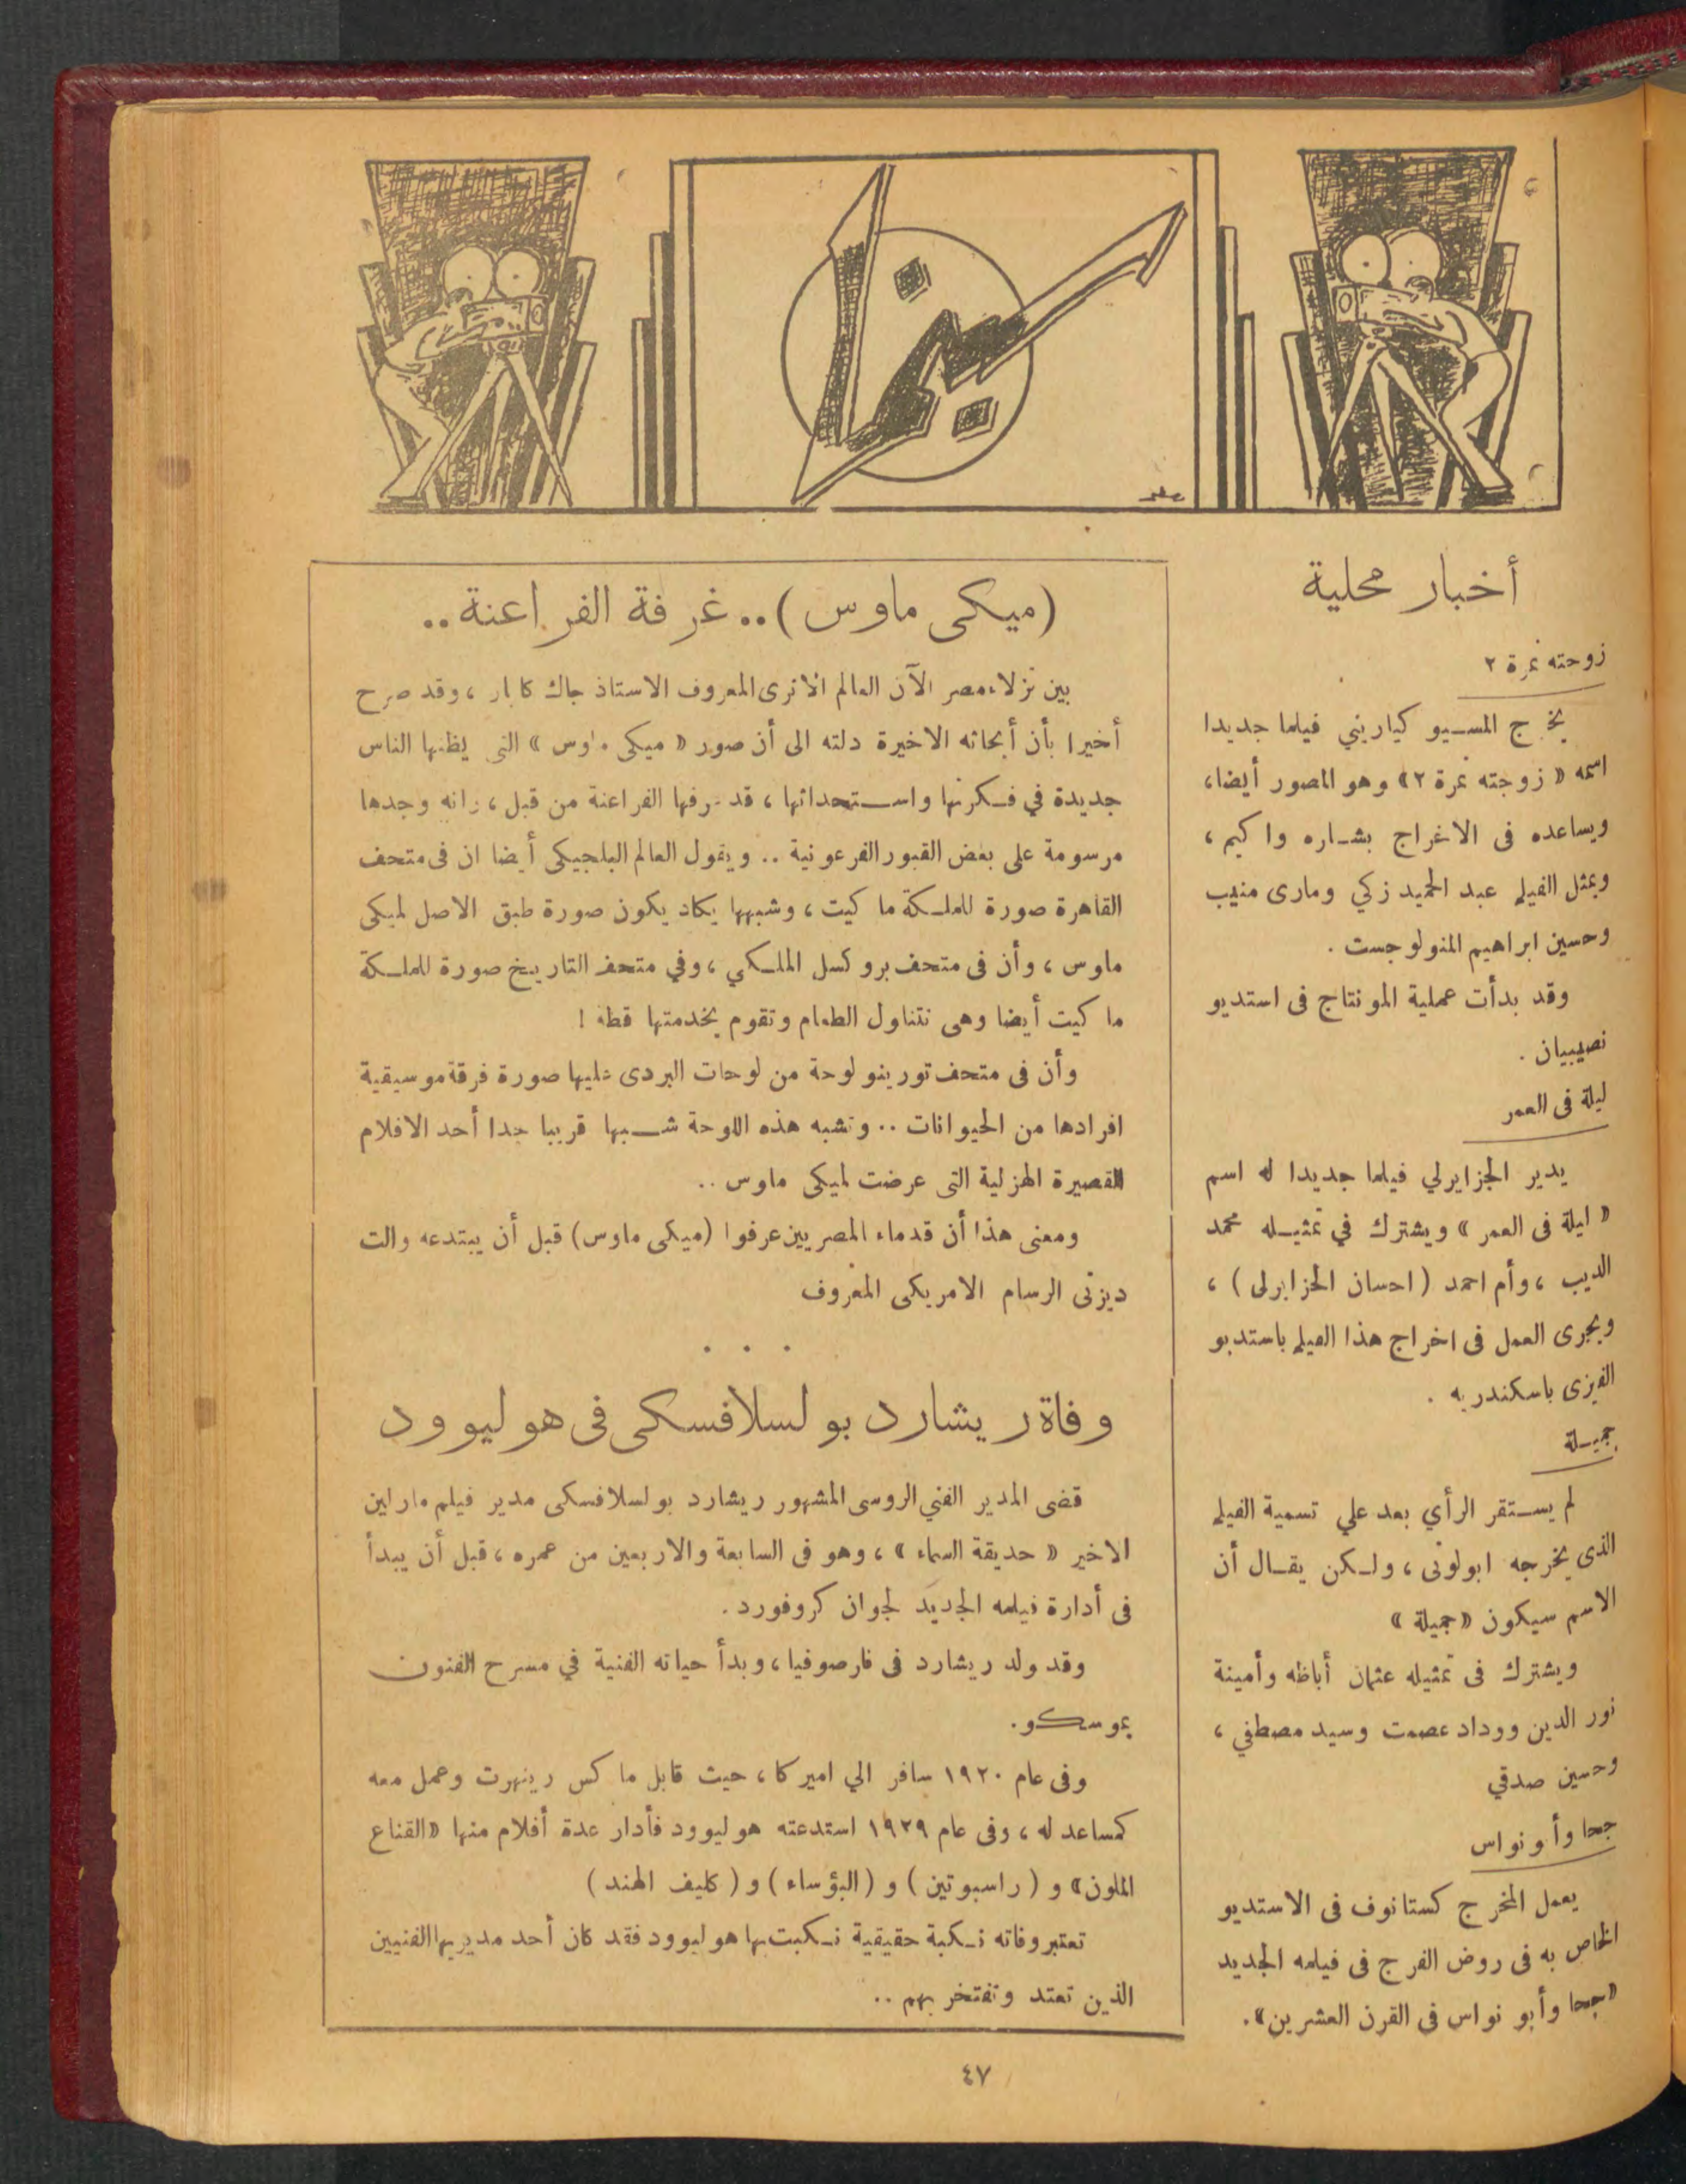 سينما
أخبار محلية
زوجته نمرة ٢
يخرج المسيو كياريني فيلما جديدا
اسمه « زوجته نمرة ٢» وهو المصور أيضا،
ويساعده فى الاغراج بشاره واكيم ،
ويمثل الفيلم عبد الحميد زكي ومارى منيب
وحسين ابراهيم المنولوجست .
وقد بدأت عملية المونتاج فى استديو
نصيبيان .
ليلة فى العمر
يدير الجزايرلي فيلما جديدا له اسم
« ليلة فى العمر » ويشترك في تمثيله محمد
الديب ، وأم احمد ( احسان الجزايرلى ) ،
ويجرى العمل فى اخراج هذا الفيلم باستديو
الفيزى باسكندريه .
جميلة
لم يستقر الرأي بعد علي تسمية الفيلم
الذى يخرجه ابولونى ، ولكن يقال أن
الاسم سيكون « جميلة »
ويشترك فى تمثيله عثمان أباظه وأمينة
نور الدين ووداد عصمت وسيد مصطفي ،
وحسين صدقي
جحا وأ و نواس
يعمل المخرج كستانوف فى الاستديو
الخاص به فى روض الفرج فى فيلمه الجديد
«جحا وأبو نواس فى القرن العشرين».
(ميكى ماوس) .. غرفة الفراعنة ..
بين نزلاء مصر الآن العالم الاثرى المعروف الاستاذ جاك كابار ، وقد صرح
أخيرا بأن أبحاثه الاخيرة دلته الى أن صور « ميكى ماوس » التى يظنها الناس
جديدة في فكرتها واستحداثها ، قد عرفها الفراعنة من قبل ، وانه وجدها
مرسومة على بعض القبور الفرعونية .. ويقول العالم البلجيكى أيضا ان فى متحف
القاهرة صورة للملكة ماكيت ، وشبهها يكاد يكون صورة طبق الاصل لميكى
ماوس ، وأن فى متحف بروكسل الملكي ، وفي متحف التاريخ صورة للملكة
ماكيت أيضا وهى تتناول الطعام وتقوم بخدمتها قطة !
وأن فى متحف تورينو لوحة من لوحات البردى عليها صورة فرقة موسيقية
افرادها من الحيوانات .. وتشبه هذه اللوحة شبها قريبا جدا أحد الافلام
القصيرة الهزلية التى عرضت لميكى ماوس ..
ومعنى هذا أن قدماء المصريين عرفوا (ميكى ماوس) قبل أن يبتدعه والت
ديزنى الرسام الامريكى المعروف
. . .
وفاة ريشارد بولسلافسكى فى هوليوود
قضى المدير الفني الروسى المشهور ريشارد بولسلافسكى مدير فيلم مارلين
الاخير « حديقة السماء » ، وهو فى السابعة والاربعين من عمره ، قبل أن يبدأ
فى أدارة فيلمه الجديد لجوان كروفورد .
وقد ولد ريشارد فى فارصوفيا ، وبدأ حياته الفنية في مسرح الفنون
بموسكو.
وفى عام ١٩٢٠ سافر الي اميركا ، حيث قابل ماكس رينهرت وعمل معه
كمساعد له ، وفى عام ١٩٢٩ استدعته هوليوود فأدار عدة أفلام منها «القناع
الملون» و ( راسبوتين ) و ( البؤساء ) و ( كليف الهند )
تعتبر وفاته نكبة حقيقية نكبت بها هوليوود فقد كان أحد مديريها الفنيين
الذين تعتد وتفتخر بهم ..
٤٧